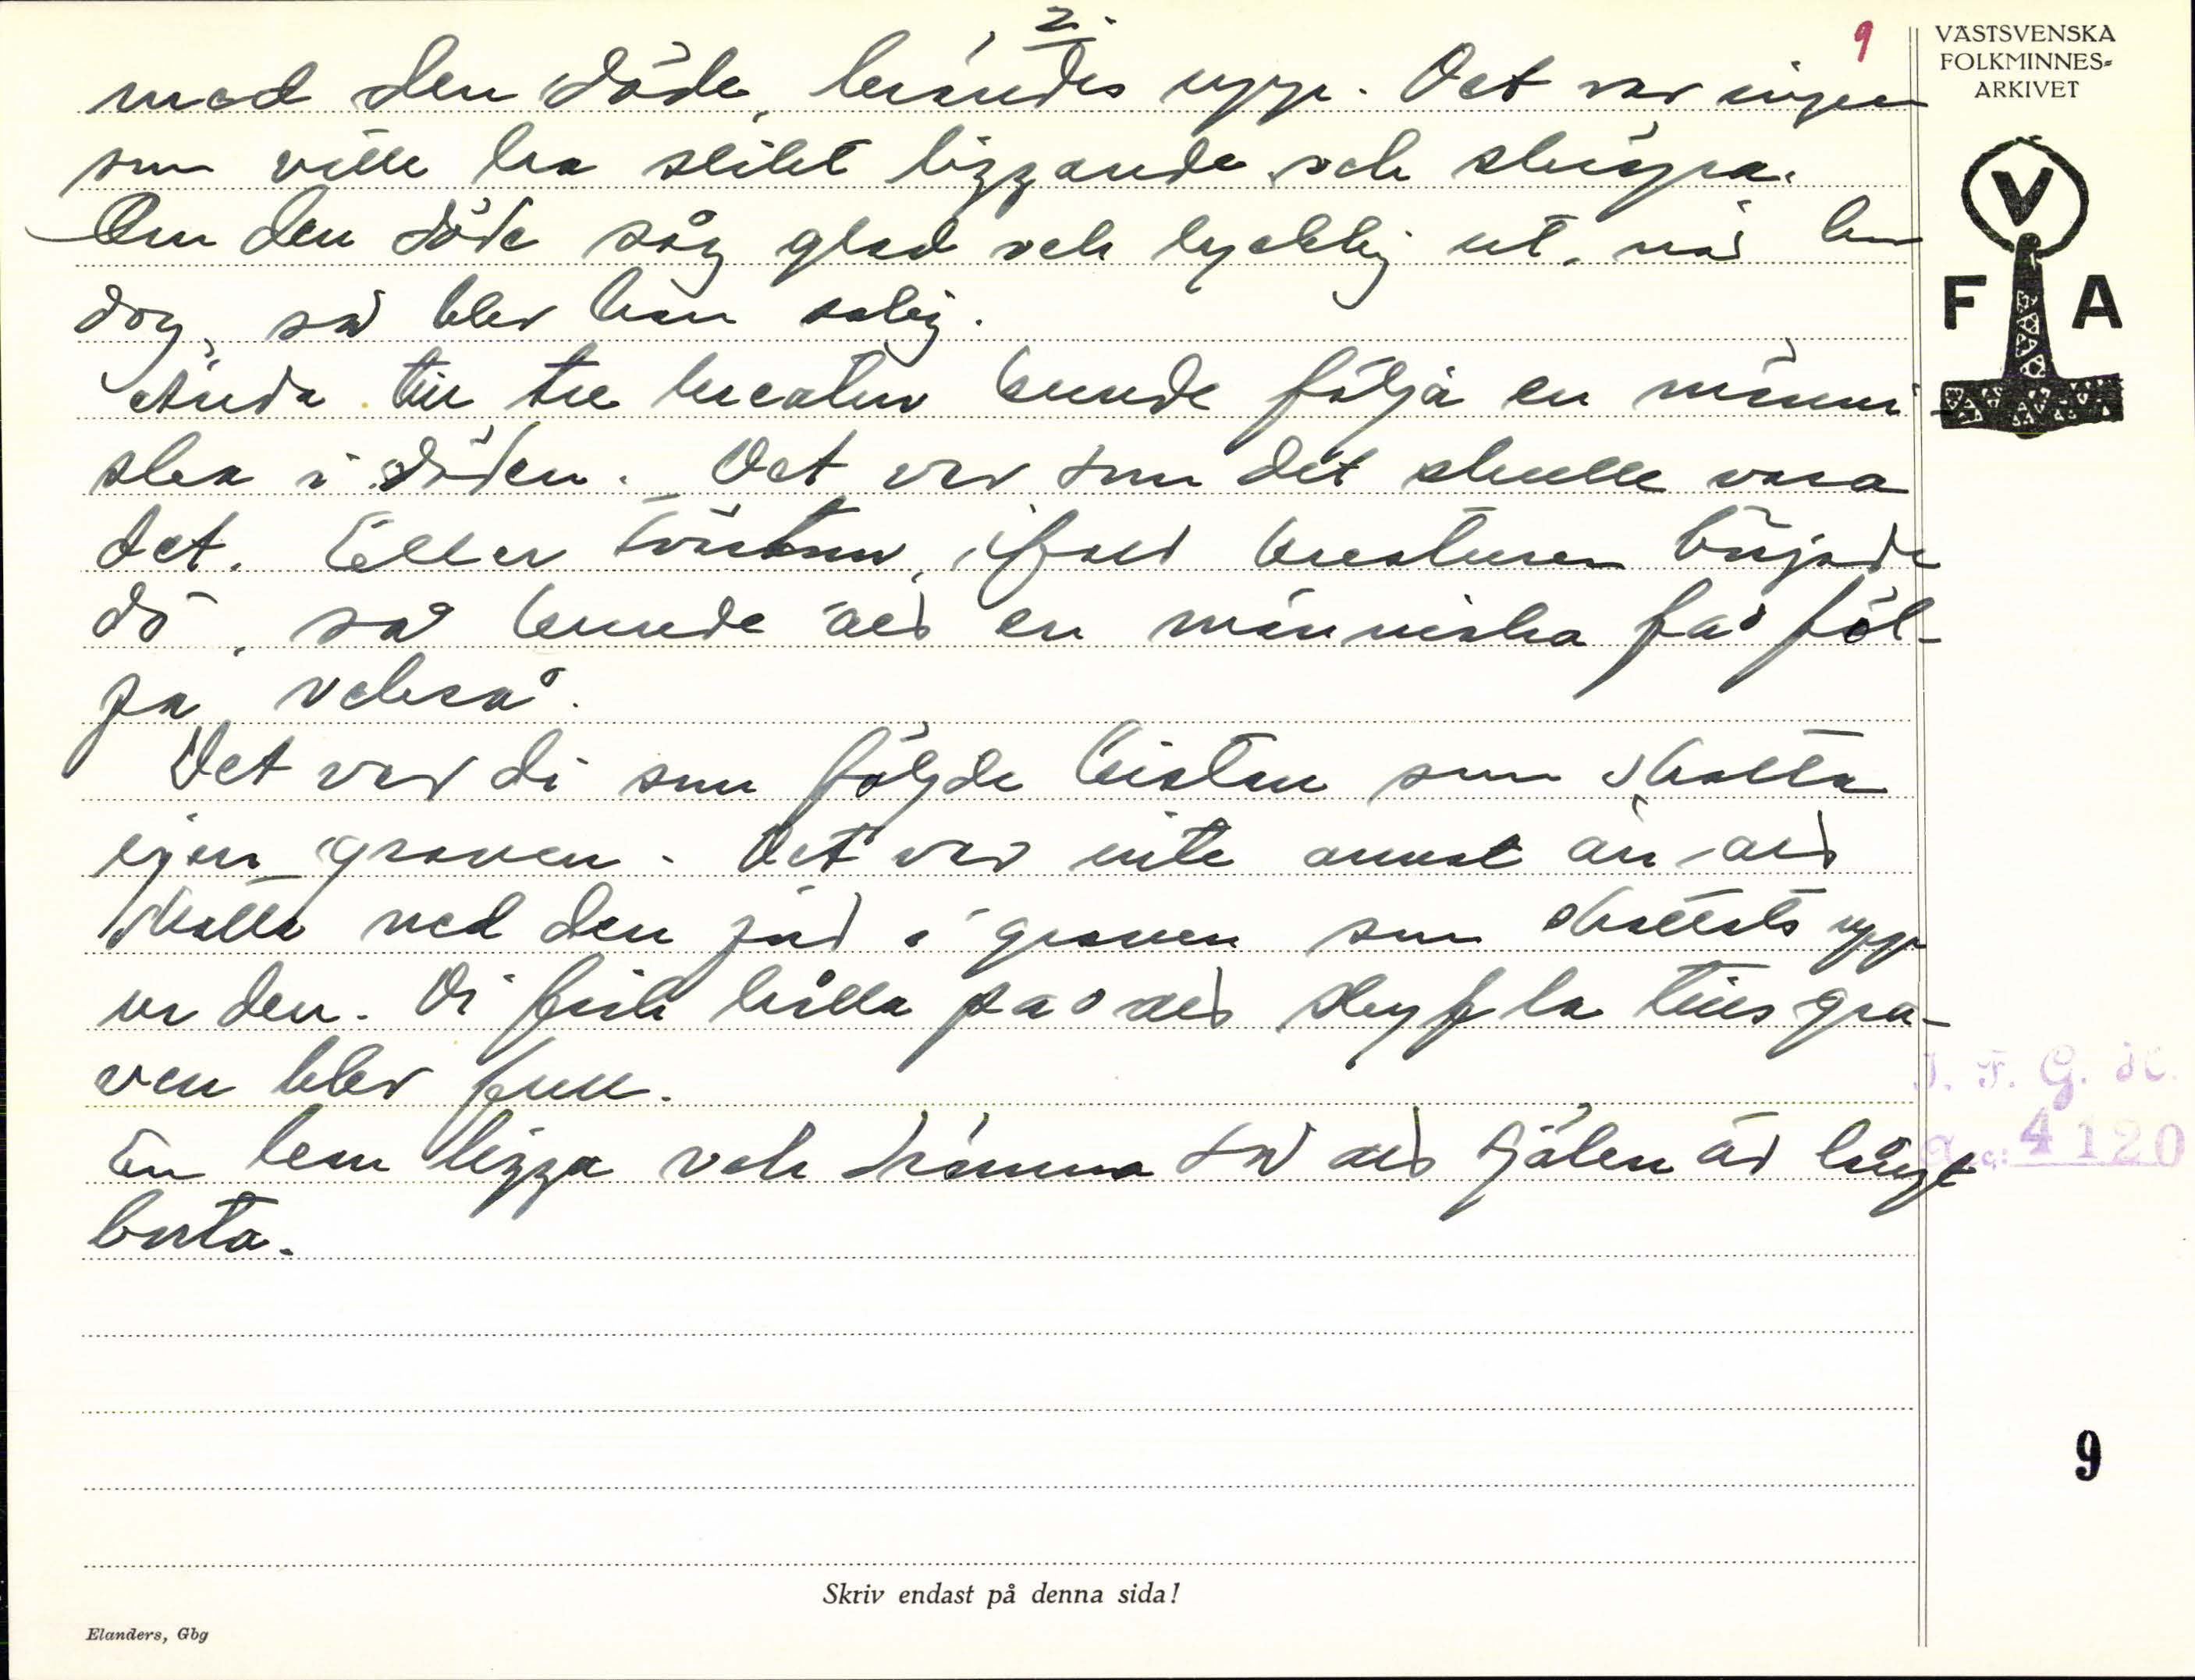 2.
9
med den döde, brändes upp. Det var ingen
som ville ha slikt liggande och skräpa.
Om den döde såg glad och lycklig ut, när han
dog, så blev han salig.
Ända till tre kreatur kunde följa en männi-
ska i döden. Det var som det skulle vara
det. Eller tvärtom, ifall kreaturen började
dö, så kunde att en människa få föl-
ja också.
Det var di som följde kistan som skotta
igen graven. Det var inte annat än att
skotta ned den jord i graven som skottats upp
ur den. Di fick hålla på att skyffla tills gra-
ven blev full.
En kan ligga och drömma så att själen är långt
borta.
VÄSTSVENSKA
FOLKMINNES-
ARKIVET
V
F A
I. F. G. H.
4120
9
Skriv endast på denna sida!
Elanders, Gbg